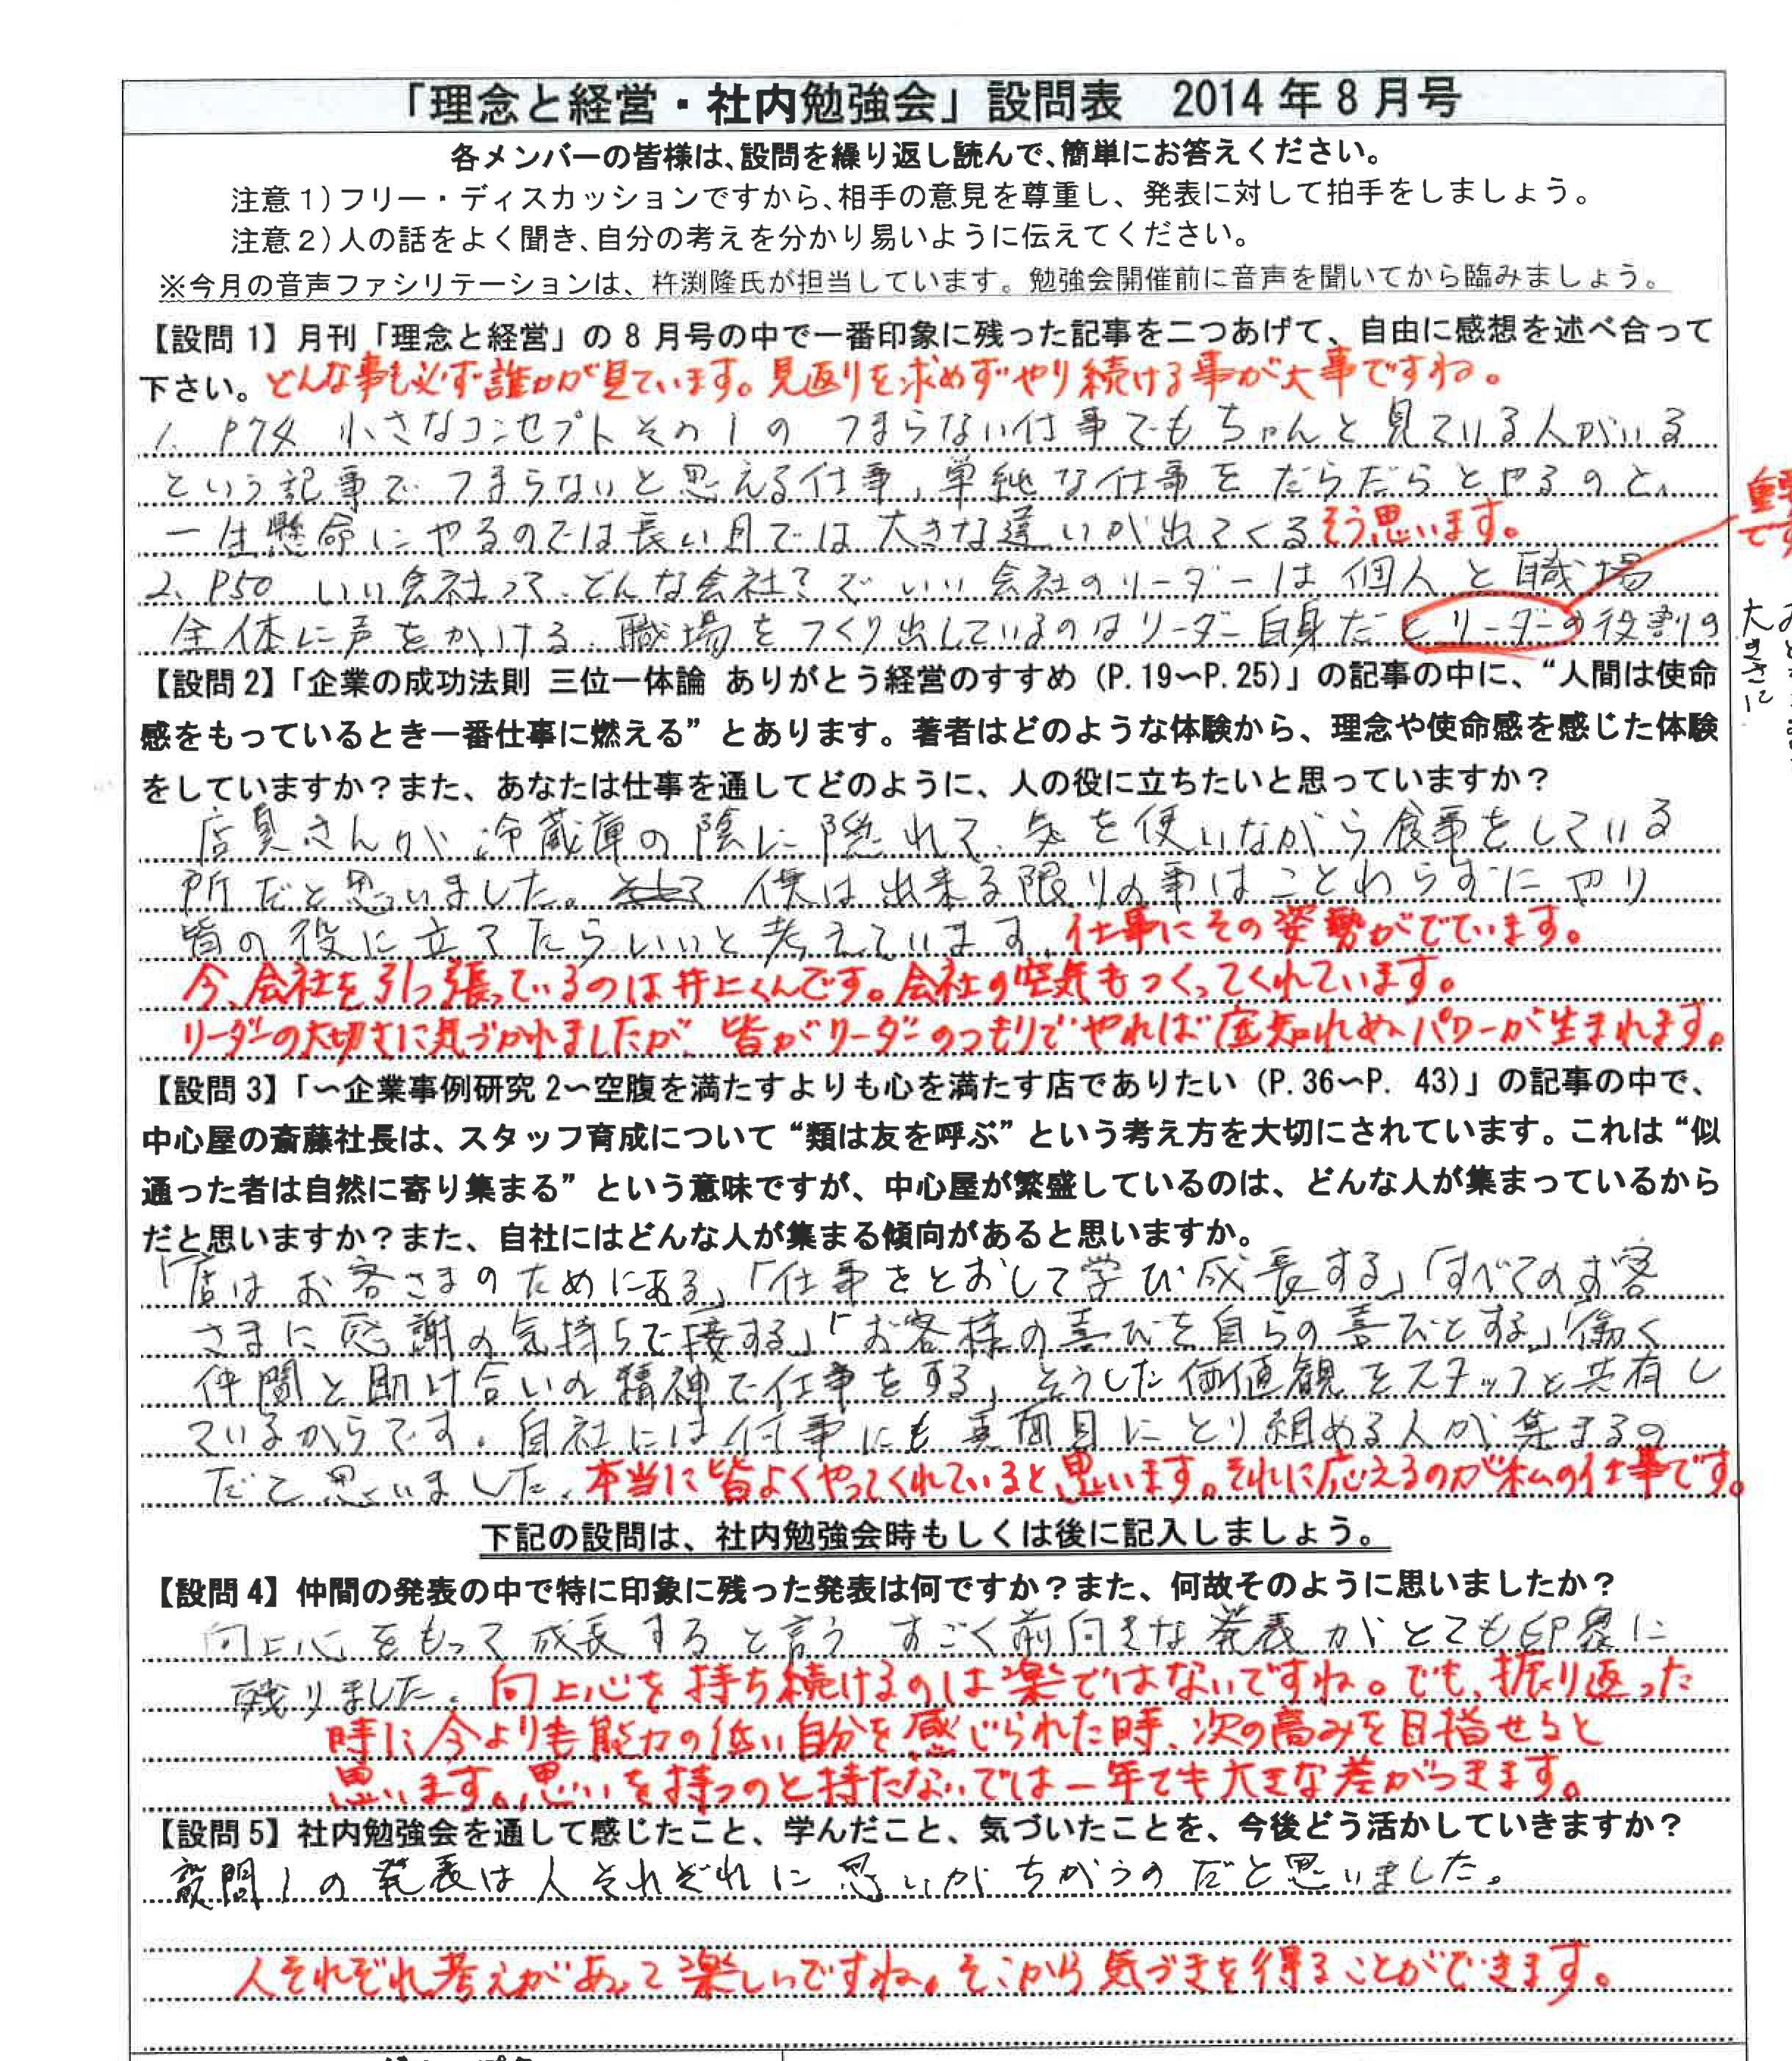 「理念と経営・社内勉強会」設問表　2014年8月号
各メンバーの皆様は、設問を繰り返し読んで、簡単にお答えください。
注意1)フリー・ディスカッションですから、相手の意見を尊重し、発表に対して拍手をしましょう。
注意2)人の話をよく聞き、自分の考えを分かり易いように伝えてください。
※今月の音声ファシリテーションは、杵渕隆氏が担当しています。勉強会開催前に音声を聞いてから臨みましょう。
【設問1】月刊「理念と経営」の8月号の中で一番印象に残った記事を二つあげて、自由に感想を述べ合って
下さい。どんな事も必ず誰かが見ています。見返りを求めずやり続ける事が大事ですね。
1、P74 小さなコンセプトその1の つまらない仕事でもちゃんと見ている人がいる
という記事で つまらないと思える仕事、単純な仕事を だらだらとやるのと、
一生懸命にやるのでは長い目では大きな違いが出てくる そう思います。
2、P50 いい会社って、どんな会社?で いい会社のリーダーは 個人と職場
全体に声をかける、職場をつくり出しているのはリーダー自身だ とリーダーの役割の
大きさに
【設問2】「企業の成功法則 三位一体論 ありがとう経営のすすめ (P.19〜P.25)」の記事の中に、“人間は使命
感をもっているとき一番仕事に燃える”とあります。著者はどのような体験から、理念や使命感を感じた体験
をしていますか?また、あなたは仕事を通してどのように、人の役に立ちたいと思っていますか?
店員さんが、冷蔵庫の陰に隠れて、気を使いながら食事をしている
所だと思いました。僕は出来る限りの事はことわらずにやり
皆の役に立てたらいいと考えています。仕事にその姿勢がでています。
今、会社を引っ張っているのは井上くんです。会社の空気もつくってくれています。
リーダーの大切さに気づかれましたが、皆がリーダーのつもりでやれば底知れぬパワーが生まれます。
【設問3】「〜企業事例研究2〜空腹を満たすよりも心を満たす店でありたい (P.36〜P. 43)」の記事の中で、
中心屋の斎藤社長は、スタッフ育成について“類は友を呼ぶ”という考え方を大切にされています。これは“似
通った者は自然に寄り集まる”という意味ですが、中心屋が繁盛しているのは、どんな人が集まっているから
だと思いますか?また、自社にはどんな人が集まる傾向があると思いますか。
「店はお客さまのためにある」「仕事をとおして学び成長する」「すべてのお客
さまに感謝の気持ちで接する」「お客様の喜びを自らの喜びとする」「働く
仲間と助け合いの精神で仕事をする」そうした価値観をスタッフと共有し
ているからです。自社には仕事にも真面目にとり組める人が集まるの
だと思いました。本当に皆よくやってくれていると思います。それに応えるのが私の仕事です。
下記の設問は、社内勉強会時もしくは後に記入しましょう。
【設問4】仲間の発表の中で特に印象に残った発表は何ですか?また、何故そのように思いましたか?
向上心をもって成長すると言う すごく前向きな発表がとても印象に
残りました。向上心を持ち続けるのは楽ではないですね。でも、振り返った
時に今よりも能力の低い自分を感じられた時、次の高みを目指せると
思います。思いを持つのと持たないでは一年でも大きな差がつきます。
【設問5】社内勉強会を通して感じたこと、学んだこと、気づいたことを、今後どう活かしていきますか?
設問1の発表は人それぞれに思いがちがうのだと思いました。
人それぞれ考えがあって楽しいですね。そこから気づきを得ることができます。